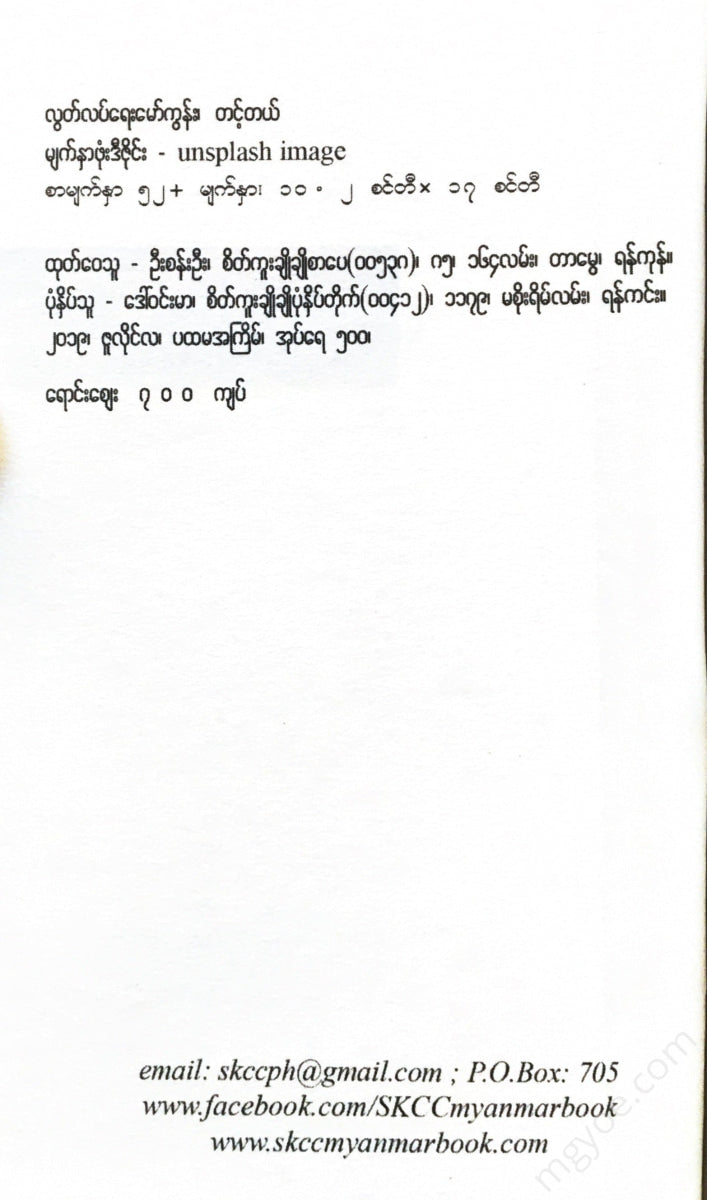 လွတ်လပ်ရေးမော်ကွန်း၊ တင့်တယ်
မျက်နှာဖုံးဒီဇိုင်း - unsplash image
စာမျက်နှာ ၅၂+ မျက်နှား ၁၀ . ၂ စင်တီ× ၁၇ စင်တီ
ထုတ်ဝေသူ - ဦးစန်းဦး၊ စိတ်ကူးချိုချိုစာပေ(၀၀၅၃၈)၊ ဂ၅၊ ၁၆၄လမ်း၊ တာမွေ၊ ရန်ကုန်။
ပုံနှိပ်သူ - ဒေါ်ဝင်းမာ၊ စိတ်ကူးချိုချိုပုံနှိပ်တိုက်(၀၀၄၁၂)၊ ၁၁၇၉၊ မစိုးရိမ်လမ်း၊ ရန်ကင်း။
၂၀၁၉၊ ဇူလိုင်လ၊ ပထမအကြိမ်၊ အုပ်ရေ ၅၀၀၊
ရောင်းဈေး ၇ ၀ ၀ ကျပ်
email: skccph@gmail.com ; P.O.Box: 705
www.facebook.com/SKCCmyanmarbook
www.skccmyanmarbook.com
mgyoe.com